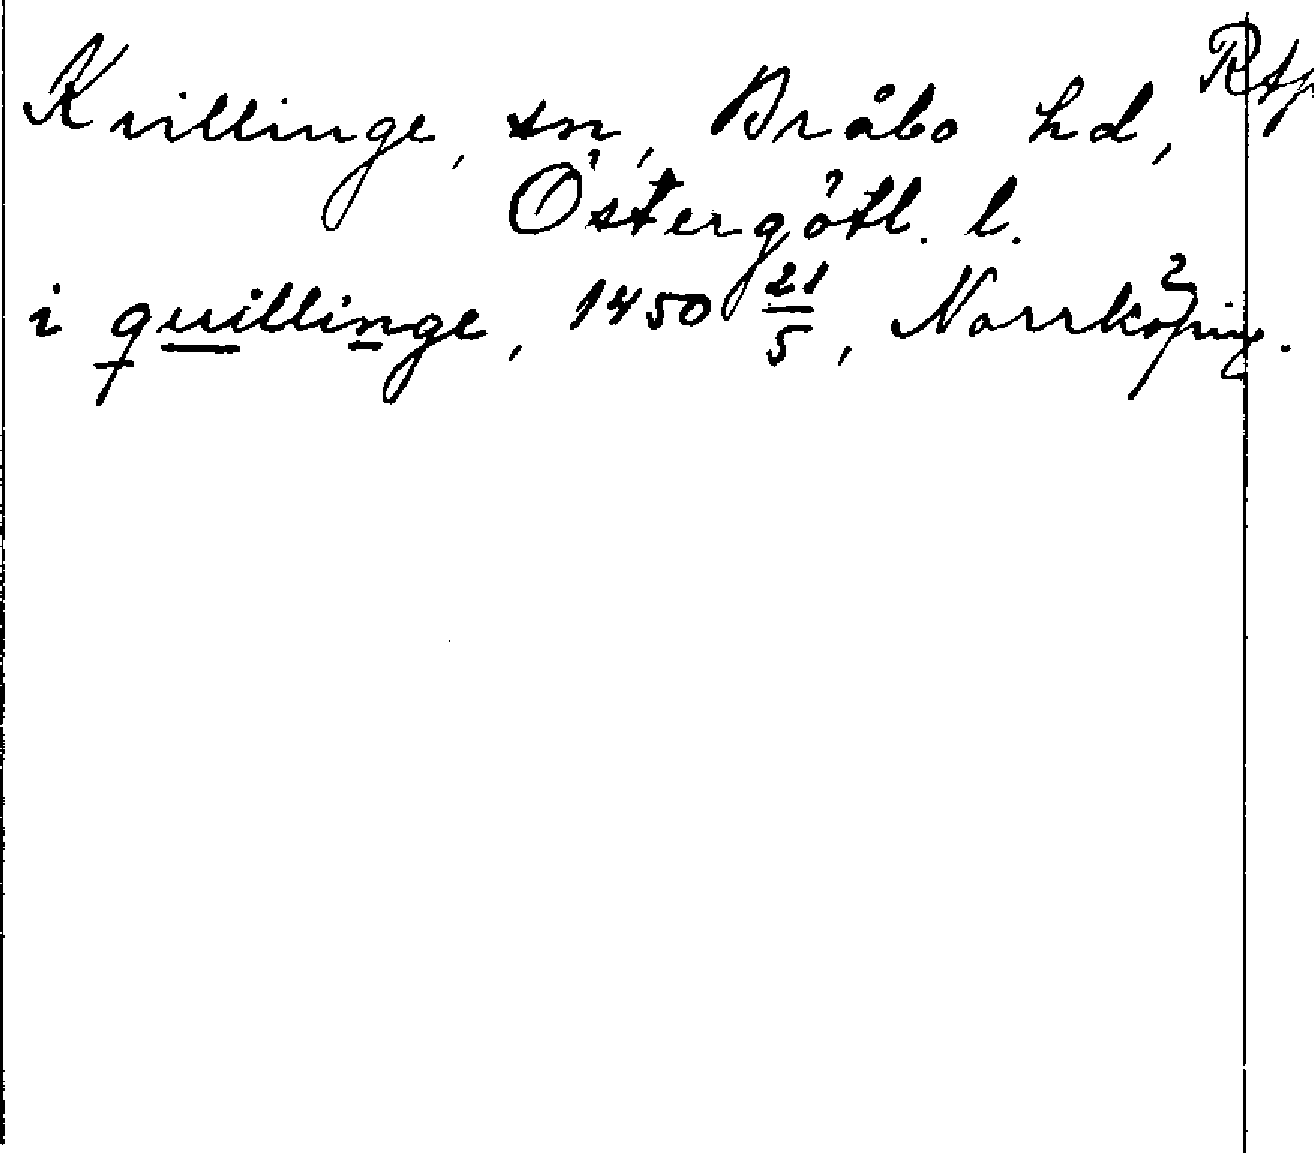 Kvillinge, sn, Bråbo hd, Rtp
Östergötl. l.
i quillinge, 1450 21/5, Norrköping.